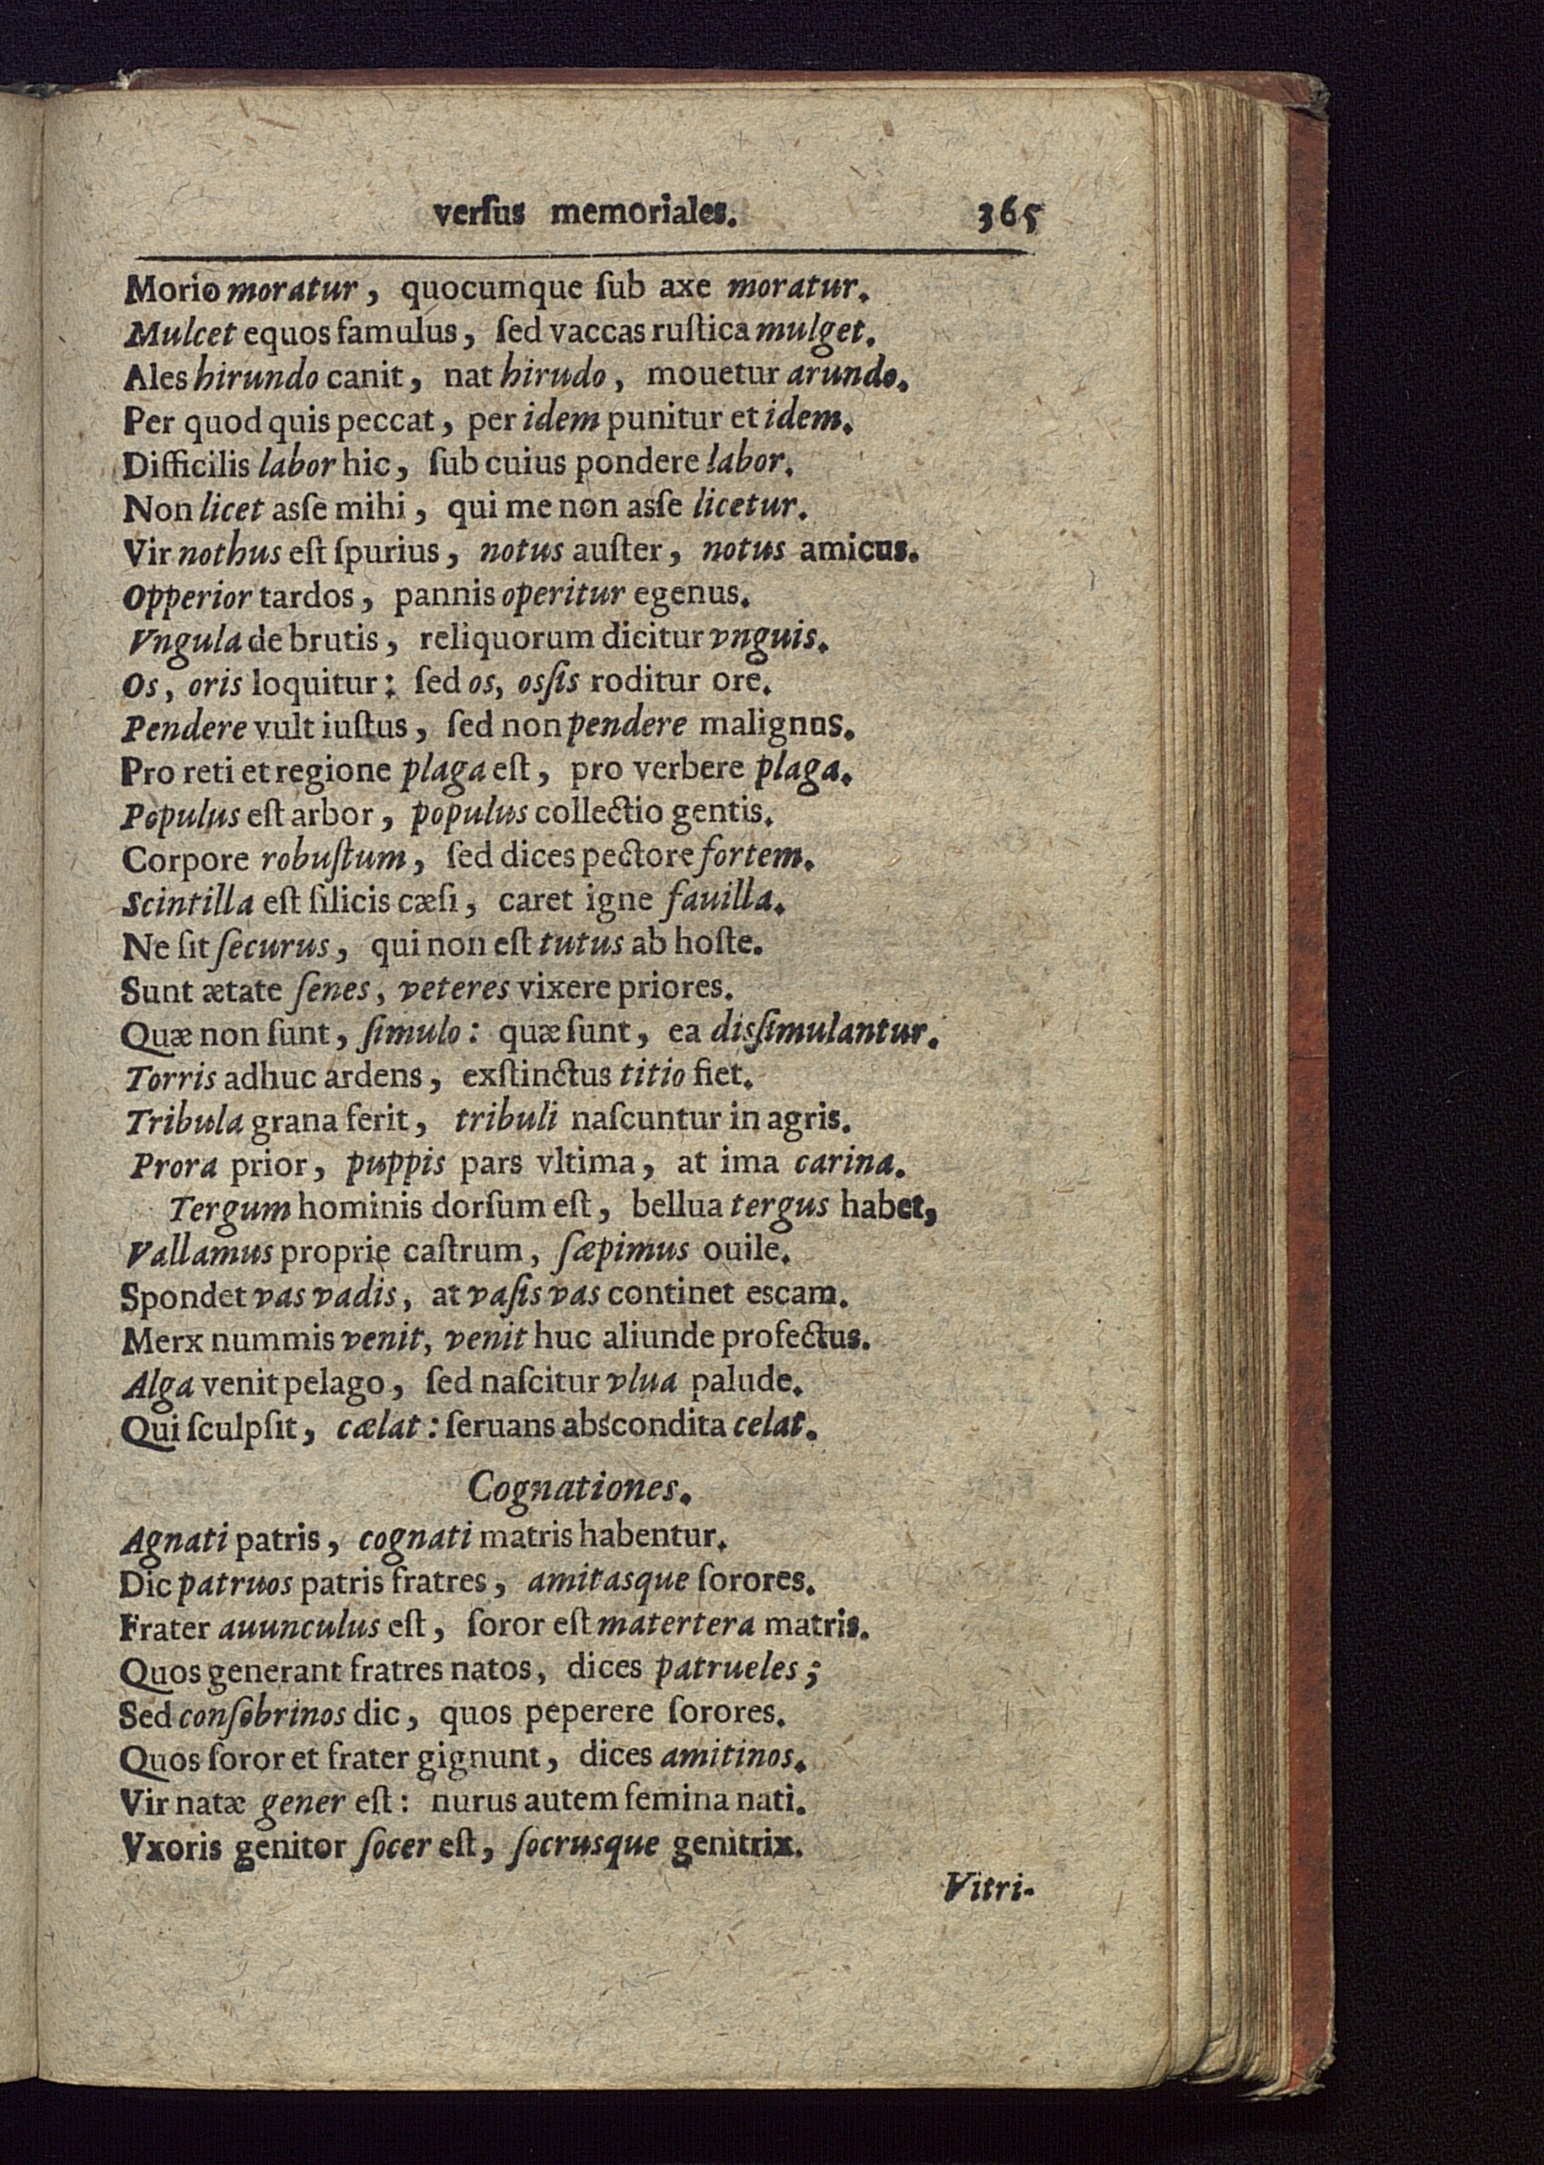 verſus memoriales. 365
Morio moratur, quocumque ſub axe moratur.
Mulcet equos famulus, ſed vaccas ruſtica mulget.
Ales hirundo canit, nat hirudo, mouetur arundo.
Per quod quis peccat, per idem punitur et idem.
Difficilis labor hic, ſub cuius pondere labor.
Non licet asſe mihi, qui me non asſe licetur.
Vir nothus eſt ſpurius, notus auſter, notus amicus.
Opperior tardos, pannis operitur egenus.
Vngula de brutis, reliquorum dicitur vnguis.
Os, oris loquitur: ſed os, osſis roditur ore.
Pendere vult iuſtus, ſed non pendere malignus.
Pro reti et regione plaga eſt, pro verbere plaga.
Populus eſt arbor, populus collectio gentis.
Corpore robuſtum, ſed dices pectore fortem.
Scintilla eſt ſilicis cæſi, caret igne fauilla.
Ne ſit ſecurus, qui non eſt tutus ab hoſte.
Sunt ætate ſenes, veteres vixere priores.
Quæ non ſunt, ſimulo: quæ ſunt, ea disſimulantur.
Torris adhuc ardens, exſtinctus titio fiet.
Tribula grana ferit, tribuli naſcuntur in agris.
Prora prior, puppis pars vltima, at ima carina.
Tergum hominis dorſum eſt, bellua tergus habet,
Vallamus proprie caſtrum, ſæpimus ouile.
Spondet vas vadis, at vaſis vas continet escam.
Merx nummis venit, venit huc aliunde profectus.
Alga venit pelago, ſed naſcitur vlua palude.
Qui ſculpſit, cælat: ſeruans abscondita celat.
Cognationes.
Agnati patris, cognati matris habentur.
Dic patruos patris fratres, amitasque ſorores.
Frater auunculus eſt, ſoror eſt matertera matris.
Quos generant fratres natos, dices patrueles;
Sed conſobrinos dic, quos peperere ſorores.
Quos ſoror et frater gignunt, dices amitinos.
Vir natæ gener eſt: nurus autem femina nati.
Vxoris genitor ſocer eſt, ſocrusque genitrix.
Vitri-